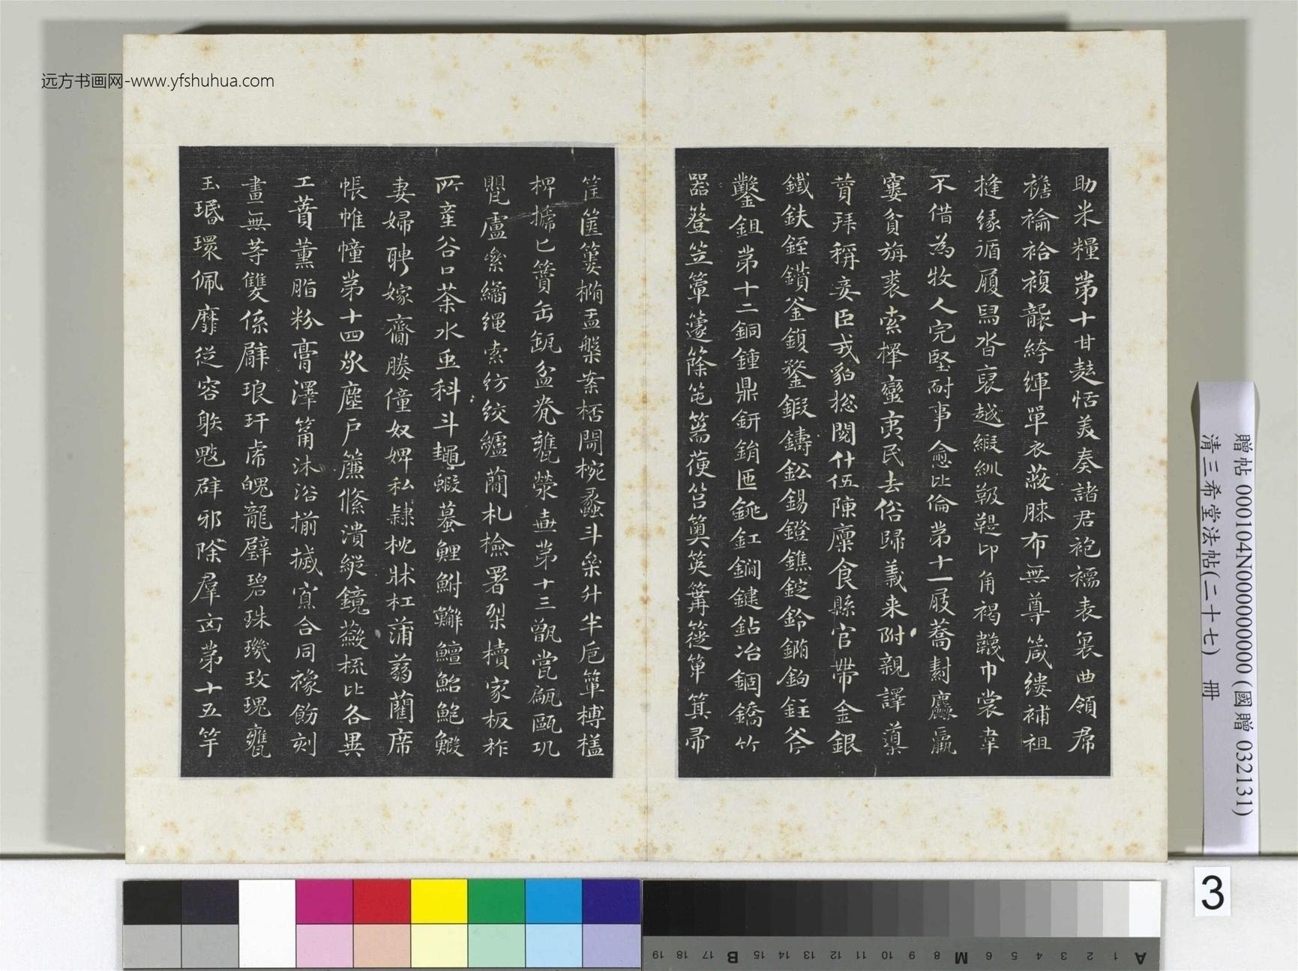 助米糧第十甘麩恬美奏諸君袍襦表裏曲領帬
襜褕袷複襲絝緷單衣蔽膝布無尊箴縷補袒
摓緣循履舄沓裒越緞紃靸鞮卬角褐韤巾裳韋
不借為牧人完堅耐事愈比倫第十一屐蕎麤羸
窶貧旃裘索擇蠻夷民去俗歸義來附親譯導
贊拜稱妾臣戎貊總閱什伍陳廩食縣官帶金銀
鐵鈇銍鑽釜鍑鍪鍛鑄鈆錫鐙鐎錠鈴鉤釭斧
鑿鉏第十二銅鍾鼎鈃鋗匜銚釭鐧鍵鉆冶錮鐈竹
器簦笠簟籧篨笆篅箯筥篝簁箄箕帚
筐篋簍橢盂槃案桮閜椀蠡斗參升半卮簞榑榼
椑榹匕簀缶瓵盆甕罃壺第十三甑瓽甂甌瓨
甖盧絫繘繩索紡絞纑蘭札檢署槧牘家板柞
所產谷口茶水虫科斗蠅蝦蟇鯉鮒鱣鮐鮑鰕
妻婦聘嫁齎媵僮奴婢私隸枕牀杠蒲蒻藺席
帳帷幢第十四承塵戶簾絛潰縱鏡蘞梳比各異
工蕡薰脂粉膏澤筩沐浴揃搣寡合同襐飭刻
畫無等雙係臂琅玕虎魄龍璧碧珠璣玫瑰甕
玉瑉環佩靡從容射鬾辟邪除群凶第十五竽
贈帖 000104N000000000 (國贈 032131)
清三希堂法帖(二十七) 冊
远方书画网-www.yfshuhua.com
3
A 1 2 3 4 5 6 M 8 9 10 11 12 13 14 15 B 17 18 19